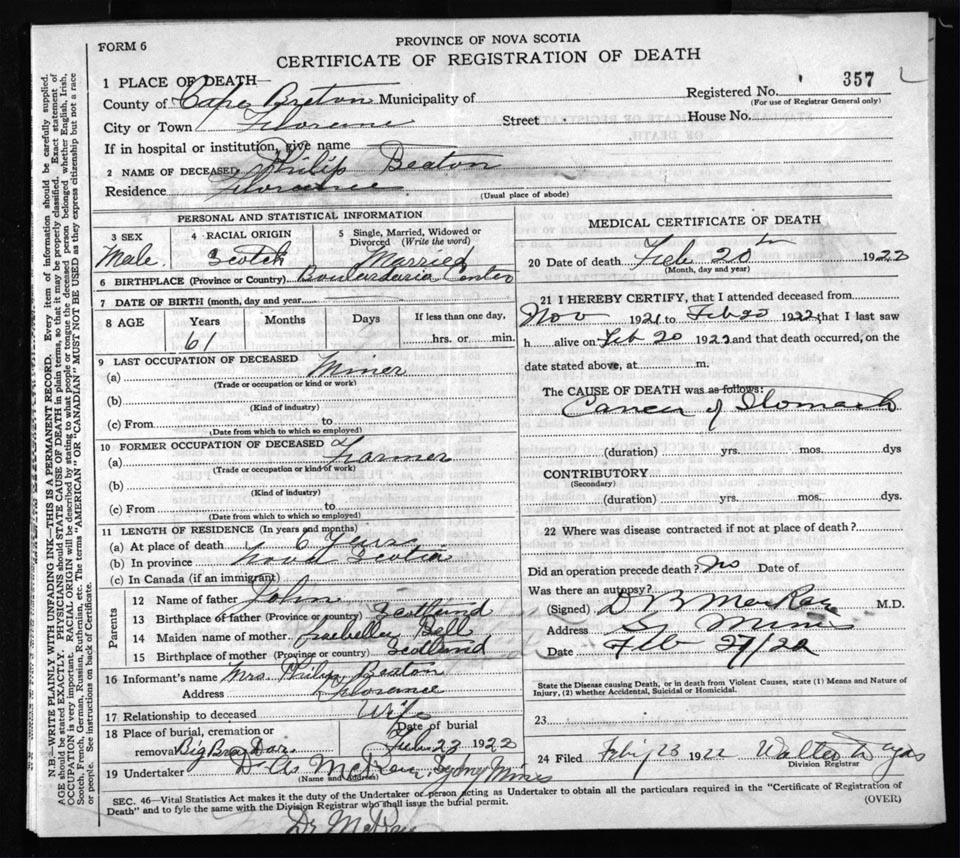 FORM 6
PROVINCE OF NOVA SCOTIA
CERTIFICATE OF REGISTRATION OF DEATH
1 PLACE OF DEATH—
Registered No. 357
County of Cape Breton Municipality of
(For use of Registrar General only)
City or Town Florence Street House No.
If in hospital or institution, give name
2 NAME OF DECEASED Philip Beaton
Residence Florence
(Usual place of abode)
PERSONAL AND STATISTICAL INFORMATION
3 SEX
Male
4 RACIAL ORIGIN
Scotch
5 Single, Married, Widowed or
Divorced (Write the word)
Married
6 BIRTHPLACE (Province or Country) Boulardaria Center
7 DATE OF BIRTH (month, day and year)
8 AGE Years Months Days If less than one day,
61 hrs. or min.
9 LAST OCCUPATION OF DECEASED
(a) Miner
(Trade or occupation or kind or work)
(b)
(Kind of industry)
(c) From to
(Date from which to which so employed)
10 FORMER OCCUPATION OF DECEASED
(a) Farmer
(Trade or occupation or kind of work)
(b)
(Kind of industry)
(c) From to
(Date from which to which so employed)
11 LENGTH OF RESIDENCE (In years and months)
(a) At place of death 6 Years
(b) In province Nova Scotia
(c) In Canada (if an immigrant)
Parents
12 Name of father John
13 Birthplace of father (Province or country) Scotland
14 Maiden name of mother Isabella Bell
15 Birthplace of mother (Province or country) Scotland
16 Informant's name Mrs Philip Beaton
Address Florence
17 Relationship to deceased Wife
18 Place of burial, cremation or
removal Big Bras Dor
Date of burial
Feb 23 1922
19 Undertaker McRae, Sydney Mines
(Name and Address)
MEDICAL CERTIFICATE OF DEATH
20 Date of death Feb 20th 1922
(Month, day and year)
21 I HEREBY CERTIFY, that I attended deceased from
Nov 1921 to Feb 20 1922, that I last saw
h alive on Feb 20 1922 and that death occurred, on the
date stated above, at m.
The CAUSE OF DEATH was as follows:
Cancer of Stomach
(duration) yrs. mos. dys
CONTRIBUTORY
(Secondary)
(duration) yrs. mos. dys.
22 Where was disease contracted if not at place of death?
Did an operation precede death? No Date of
Was there an autopsy?
(Signed) D B MacRae M.D.
Address Sy Mines
Date Feb 27/22
State the Disease causing Death, or in death from Violent Causes, state (1) Means and Nature of
Injury, (2) whether Accidental, Suicidal or Homicidal.
23
24 Filed 23 1922 Walter
Division Registrar
SEC. 46—Vital Statistics Act makes it the duty of the Undertaker or person acting as Undertaker to obtain all the particulars required in the "Certificate of Registration of
Death" and to fyle the same with the Division Registrar who shall issue the burial permit.
(OVER)
Dr McRae
N.B.—WRITE PLAINLY WITH UNFADING INK—THIS IS A PERMANENT RECORD. Every item of information should be carefully supplied.
AGE should be stated EXACTLY. PHYSICIANS should STATE CAUSE OF DEATH in plain terms, so that it may be properly classified. Exact statement of
OCCUPATION is very important. RACIAL ORIGIN will be described by stating to what people or tongue the deceased person belonged whether English, Irish,
Scotch, French, German, Russian, Ruthenian, etc. The terms "AMERICAN" OR "CANADIAN" MUST NOT BE USED as they express citizenship but not a race
or people. See instructions on back of Certificate.